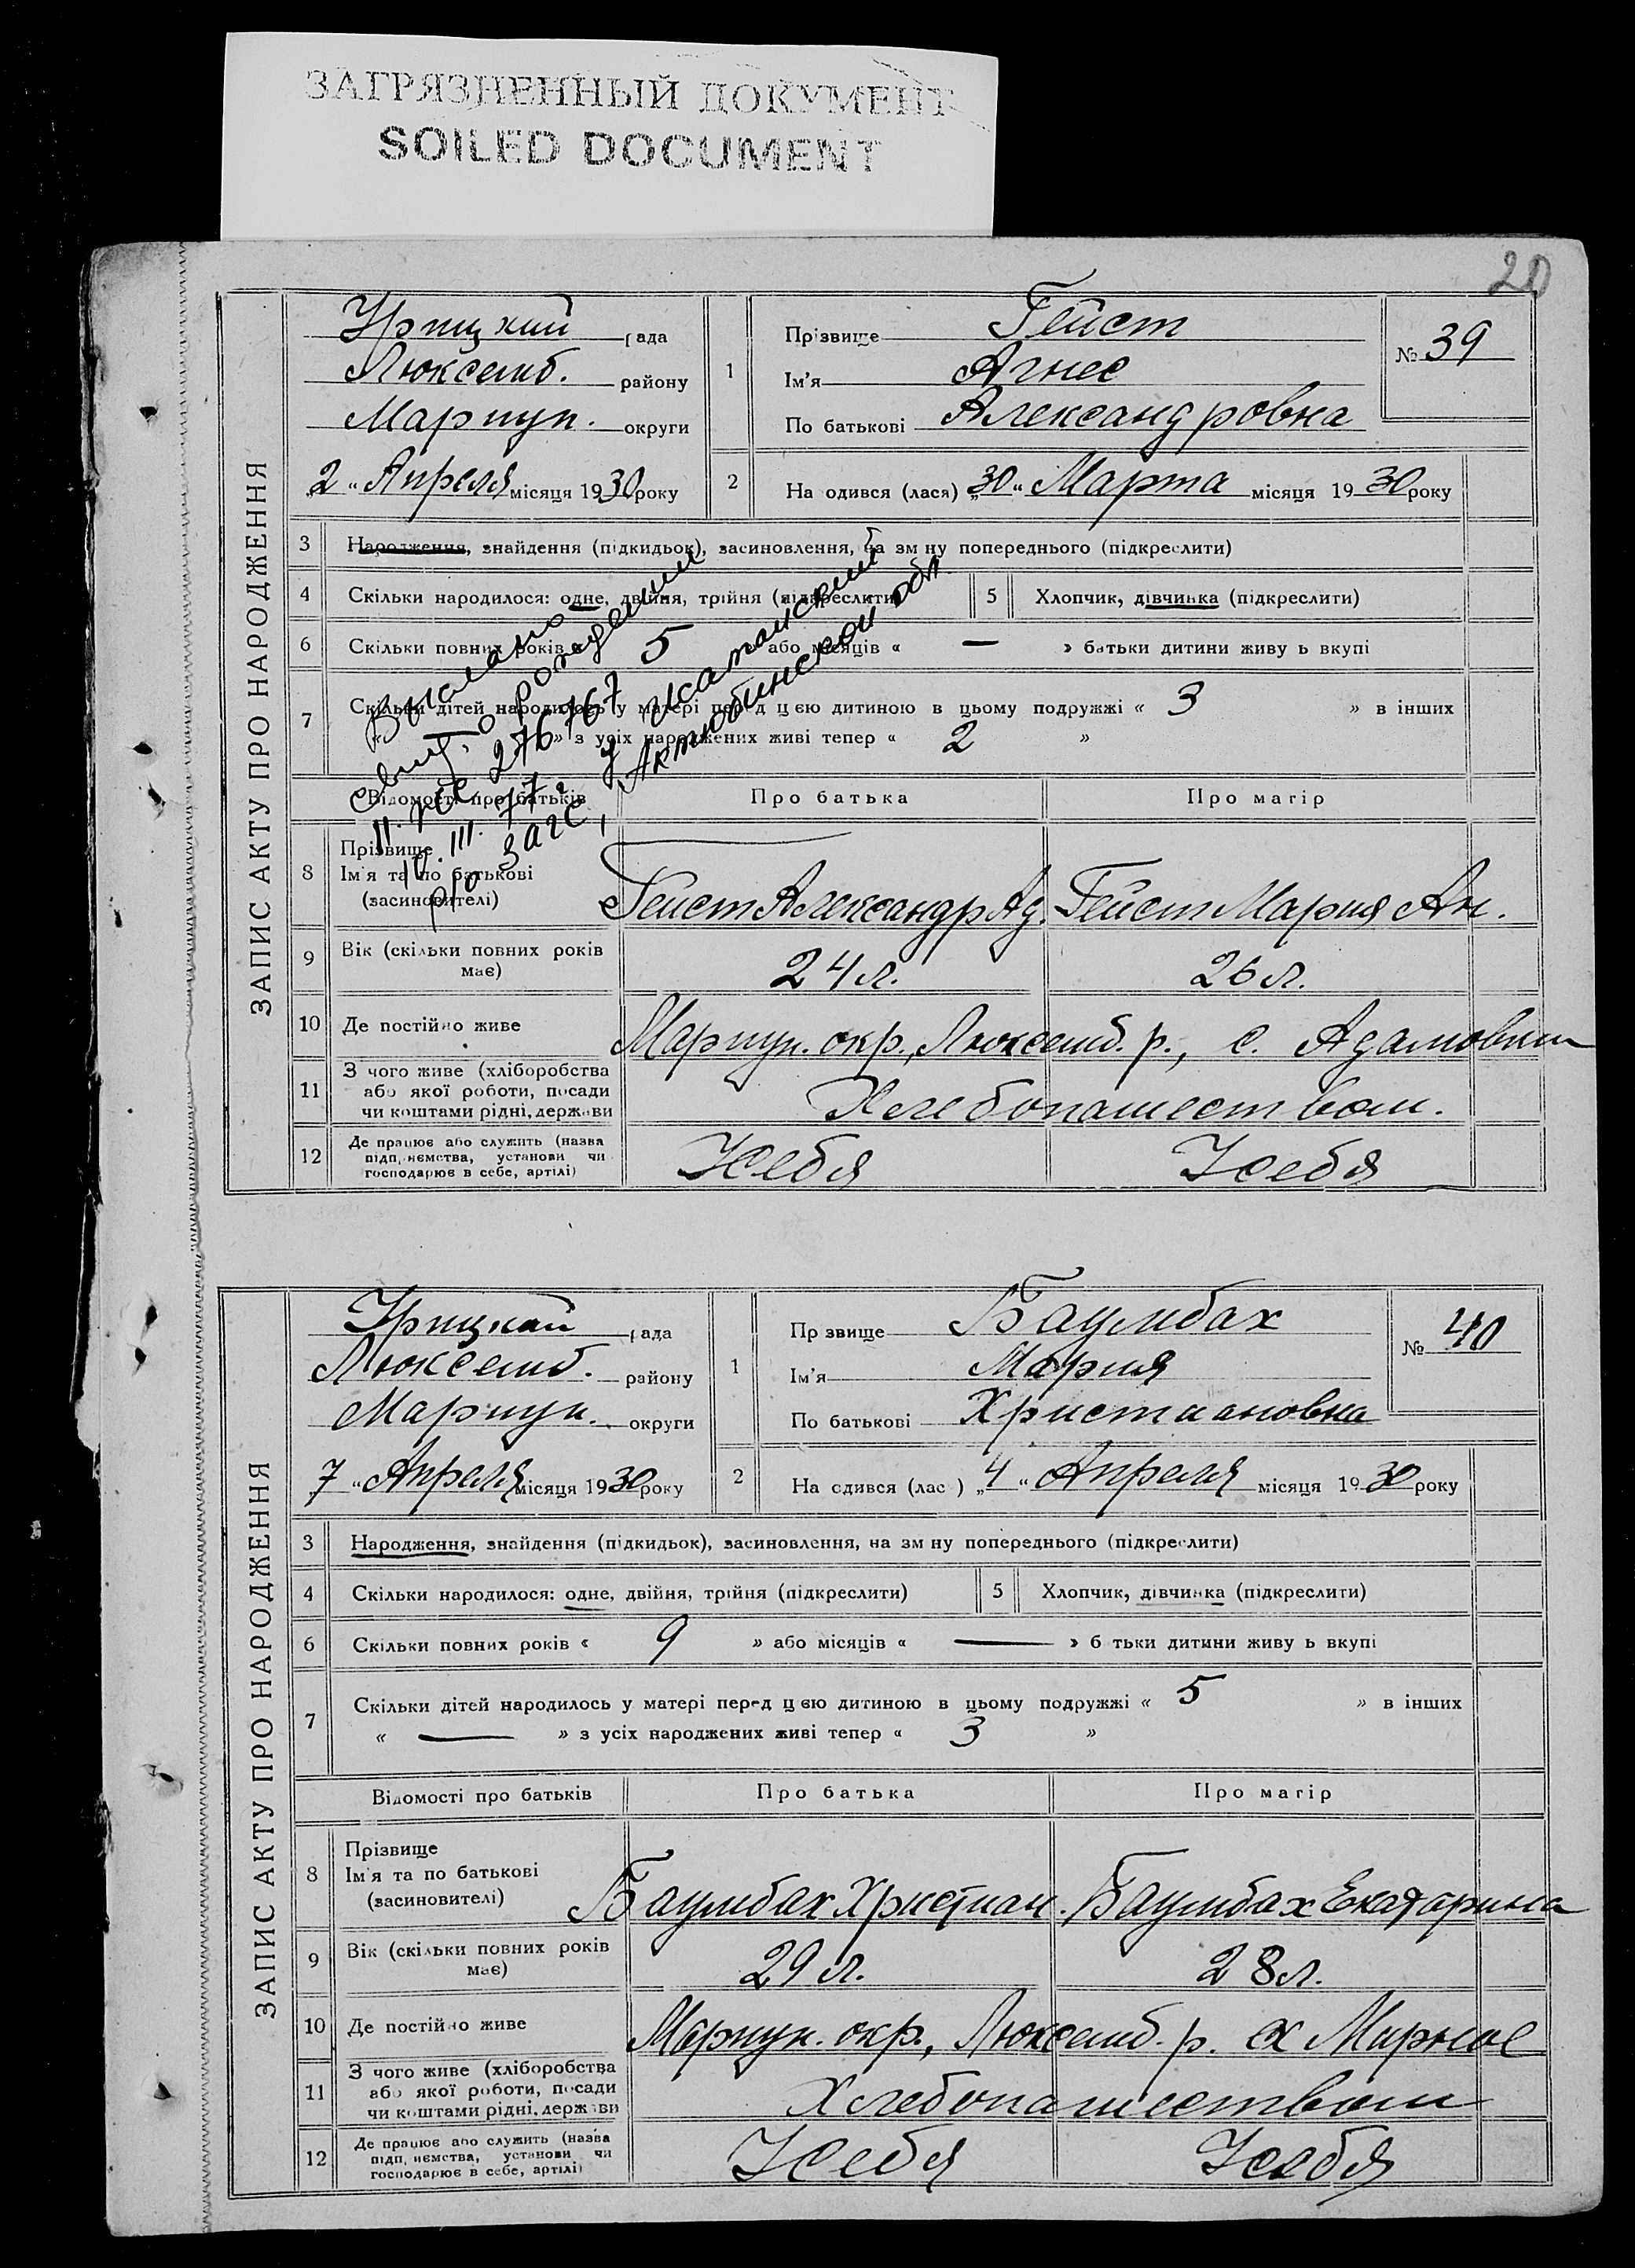 ЗАГРЯЗНЕННЫЙ ДОКУМЕНТ
SOILED DOCUMENT
20
ЗАПИС АКТУ ПРО НАРОДЖЕННЯ
Урицкий рада
Люксемб. району
Мариуп. округи
„2“ Апреля місяця 1930 року
1
Прізвище Гейст
Ім'я Агнес
По батькові Александровна
№ 39
2
На одився (лася) „30“ Марта місяця 1930 року
3 Народження, знайдення (підкидьок), засиновлення, на зм ну попереднього (підкреслити)
4 Скільки народилося: одне, двійня, трійня (підкреслити)
5 Хлопчик, дівчинка (підкреслити)
6 Скільки повних років « 5 » або місяців « — » батьки дитини живу ь вкупі
7 Скільки дітей народилось у матері перед цею дитиною в цьому подружжі « 3 » в інших
« » з усіх народжених живі тепер « 2 »
Выслано
свид. о рождении
276767
10.III.77г.
р/о загс,
Актюбинской обл.
Відомості про батьків
Про батька
Про матір
8 Прізвище
Ім'я та по батькові
(засиновителі)
Гейст Александр Ад.
Гейст Мария Ан.
9 Вік (скільки повних років
має)
24 л.
26 л.
10 Де постійно живе
Мариуп. окр., Люксемб. р., с. Адамовки
11 З чого живе (хліборобства
або якої роботи, посади
чи коштами рідні, держави
Хлебопашеством.
12 Де працює або служить (назва
підп, иємства, установи чи
господарює в себе, артілі)
Усебя
Усебя
ЗАПИС АКТУ ПРО НАРОДЖЕННЯ
Урицкий рада
Люксемб. району
Мариуп. округи
7“ Апреля місяця 1930 року
1
Пр звище Баумбах
Ім'я Мария
По батькові Христиановна
№ 40
2
На одився (лас ) „4“ Апреля місяця 1930 року
3 Народження, знайдення (підкидьок), засиновлення, на зм ну попереднього (підкреслити)
4 Скільки народилося: одне, двійня, трійня (підкреслити)
5 Хлопчик, дівчинка (підкреслити)
6 Скільки повних років « 9 » або місяців « — » б тьки дитини живу ь вкупі
7 Скільки дітей народилось у матері перед цею дитиною в цьому подружжі « 5 » в інших
« — » з усіх народжених живі тепер « 3 »
Відомості про батьків
Про батька
Про матір
8 Прізвище
Ім'я та по батькові
(засиновителі)
Баумбах Христиан.
Баумбах Екатарина
9 Вік (скільки повних років
має)
29 л.
28 л.
10 Де постійно живе
Мариуп. окр., Люксемб. р. Мирное
11 З чого живе (хліборобства
або якої роботи, посади
чи коштами рідні, держ ви
Хлебопашеством
12 Де працює або служить (назва
підп, иємства, установи чи
господарює в себе, артілі)
Усебя
Усебя